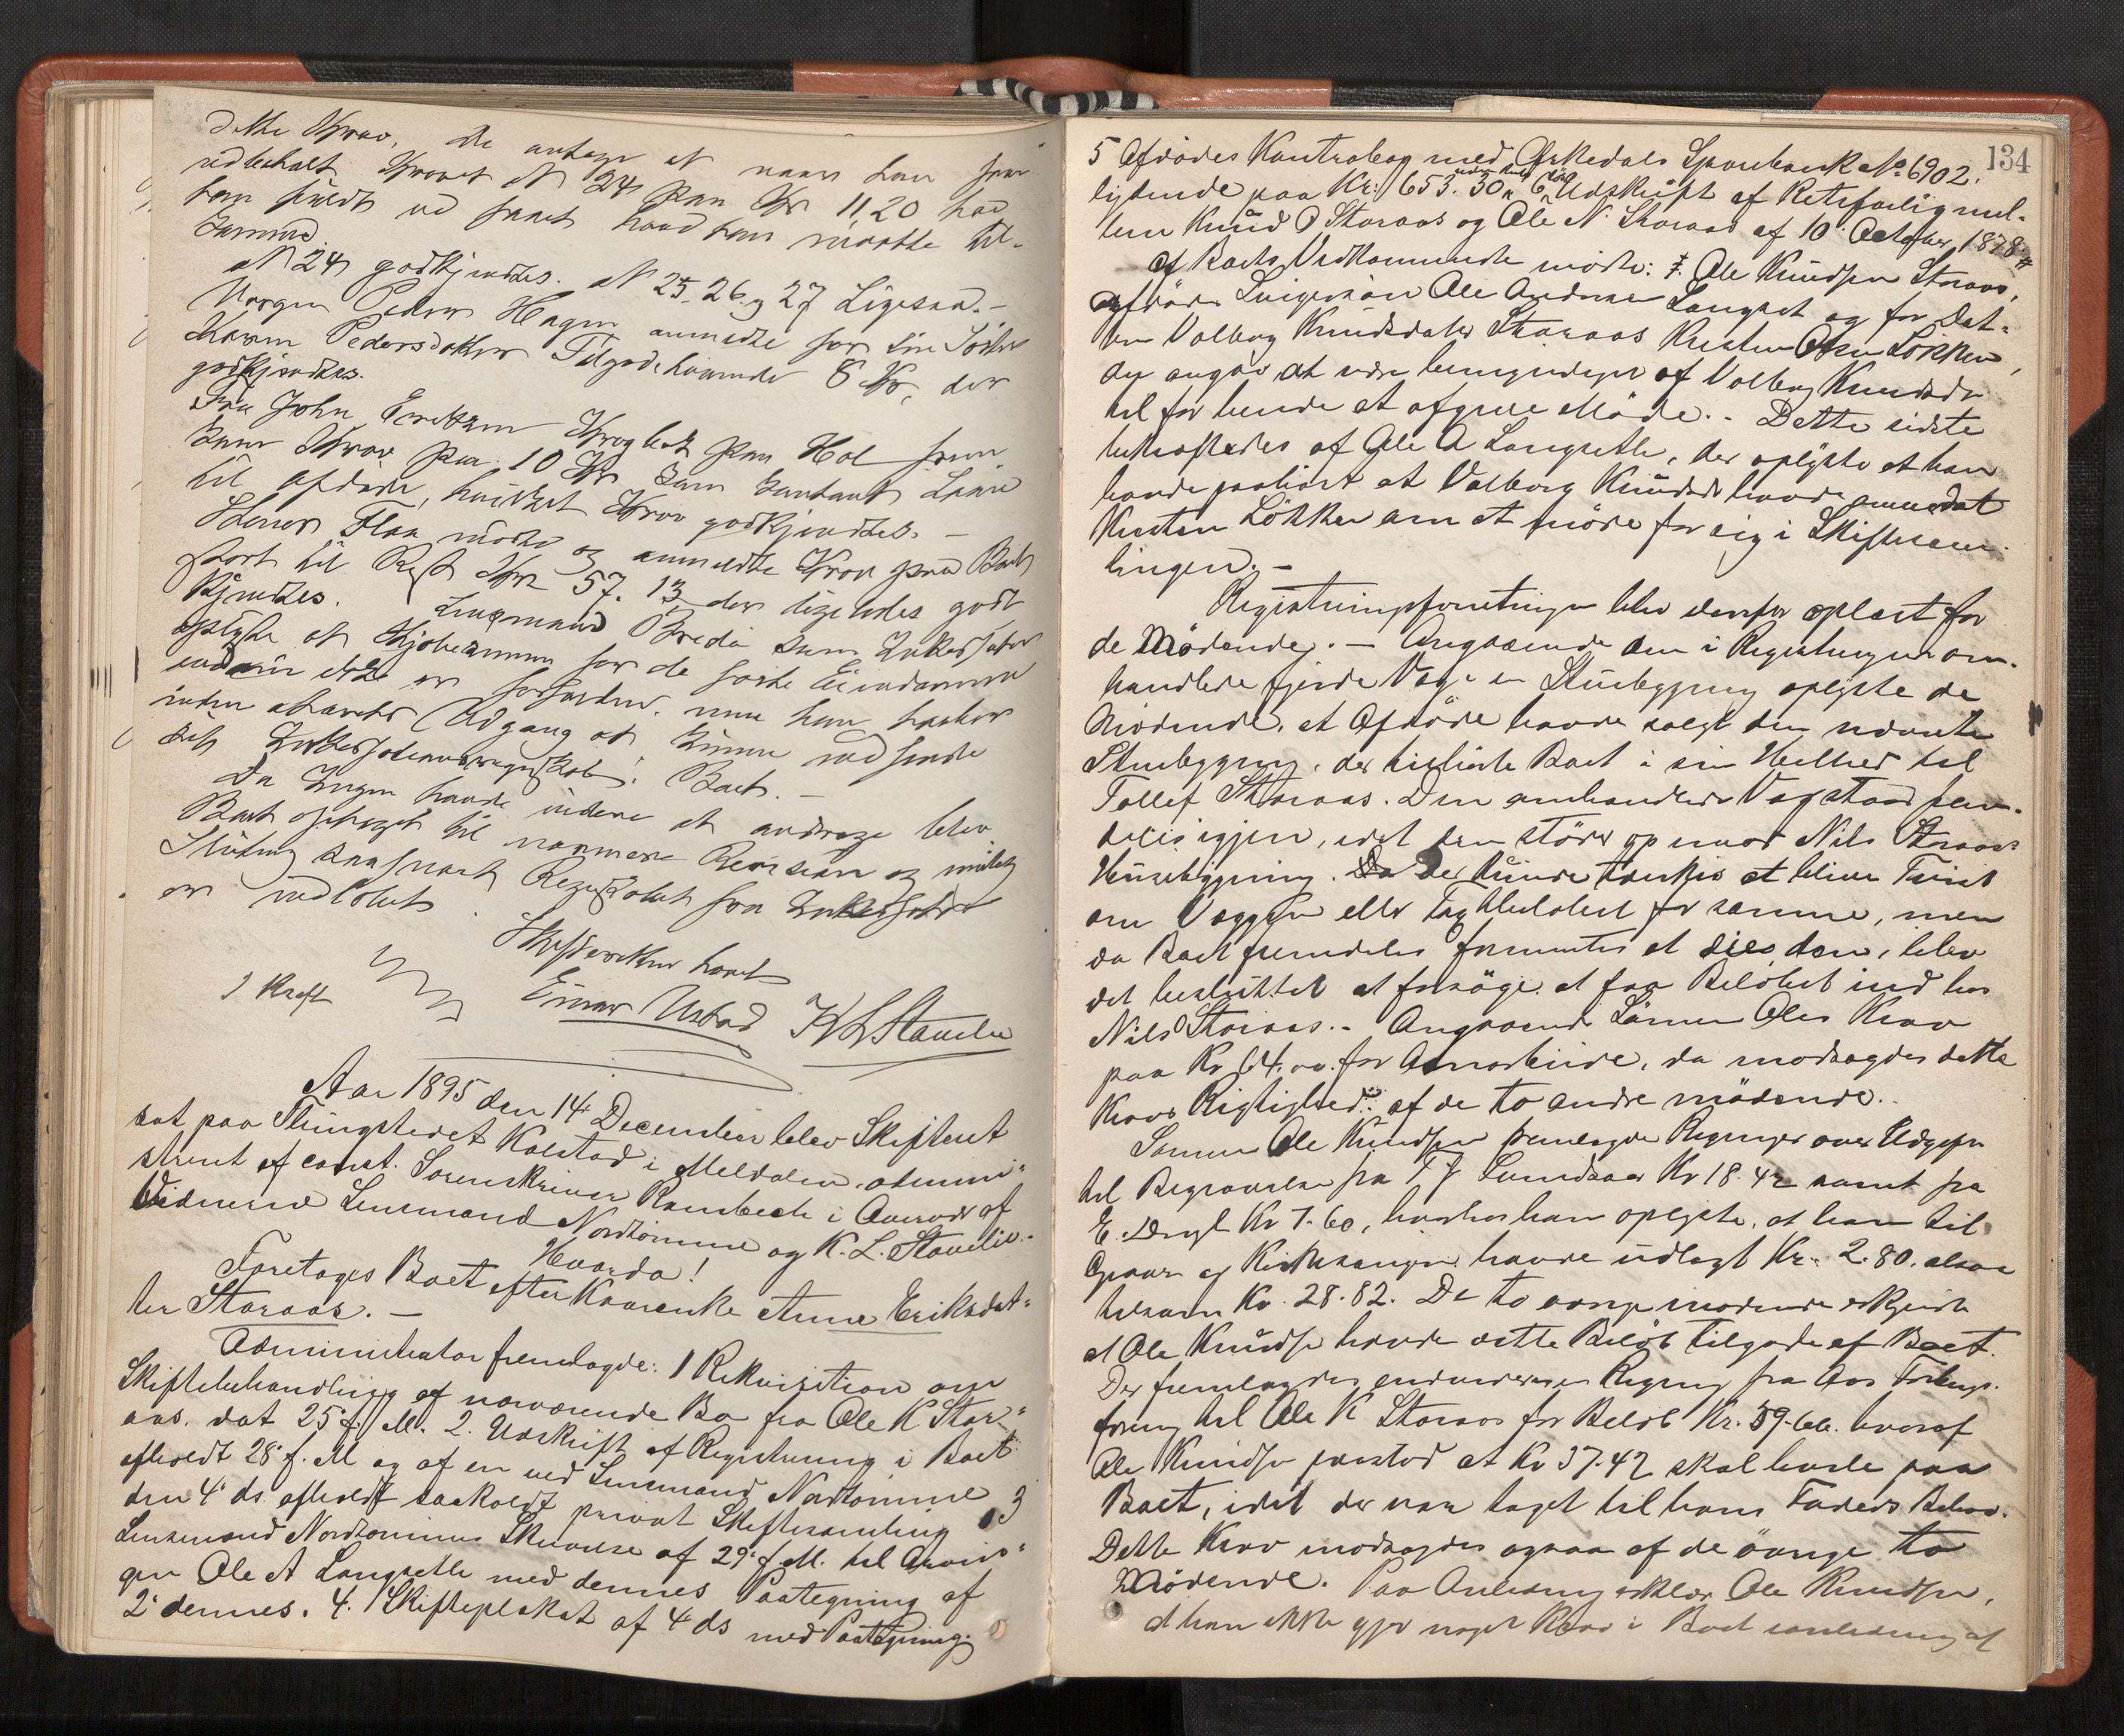 dette Krav, de antager at naar han faar
udbetalt Kravet N 24 paa Kr 11,20 har
han fuldt ud faaet hvad han maatte til-
komme
N 24 godkjendtes. N 25, 26 og 27 Ligesaa.-
Peder Hagen anmeldte for sin Søster
Karen Pedersdatter Tilgodehavende 8 Kr, der
godkjendtes.
Fra John Eriksen Krogbek paa Hol frem
kom Krav paa 10 Kr som kontant Laan
til afdøde, hvilket Krav godkjendtes. -
Flaa mødte og anmeldte Krav paa Boet
stort til Rest Kr 57.13 der ligeledes godt
kjendtes. Lensmand Bredø som Inkassator
oplyste at Kjøbesummen for de solgte Eiendomme
endnu ikke er forfalden, men han haaber
inden Aarets Udgang at kunne indsende
sit Inkassationsregnskab i Boet. -
Da Ingen havde videre at andrage blev
Boet optaget til nærmere Revision og mulig
Slutning saasnart Regnskabet fra Inkassator
er indløbet.
Skifteretten hævet
I Kraft
Einar Usbad K L Stavelie
Aar 1895 den 14 December blev Skifteret
sat paa Thingstedet Kolstad i Meldalen, admini-
streret af const. Sorenskriver Rambech i Overvær af
Vidnerne Lensmand Nordtømme og K. L. Stavelie.-
Hvorda!
Foretoges Boet efter Kaarenke Anne Eriksdat-
ter Storaas. -
Administrator fremlagde: 1 Rekvisition om
Skiftebehandling af nærværende Bo fra Ole K Stor-
aas. dat 25' f. M. 2. Udskrift af Registrering i Boet
afholdt 28' f. M og af en ved Lensmand Nordtømme
den 4' ds. afholdt saakaldt privat Skiftesamling 3
Lensmand Nordtømmes Skrivelse af 29' f. M. til Arvin-
gen Ole A Langsetle med dennes Paategning af
2' dennes. 4. Skifteplakat af 4 ds med Paategning.
134
5 Afdødes Kontrabog med Ørkedals Sparebank No 6902.
lydende paa Kr: 653.30 6 Udskrift af Retsforlig mel-
lem Knud O Storaas og Ole N. Storaas af 10' October 1878.
Af Boets Vedkommende mødte: Ole Knudsen Storaas,
afdødes Svigersøn Ole Andersen Langset og for Dat-
ren Valborg Knudsdatter Storaas Kristen Løkken,
der angav at være bemyndiget af Valborg Knudsdr
til for hende at afgive Møde. - Dette sidste
bekræftedes af Ole A Langsetle, der oplyste at han
havde paahørt at Valborg Knudsdr havde anmodet
Kristen Løkken om at møde for sig i Skiftesam-
lingen. -
Registreringsforretningen blev derefter oplæst for
de Mødende. - Angaaende den i Registreringen om-
handlede fjerde Væg i en Stuebygning oplyste de
Mødende, at Afdøde havde solgt den nævnte
Stuebygning, der tilhørte Boet i sin Helhed til
Tollef Storaas. Den omhandlede Væg staar frem-
deles igjen, idet den støder op mod Nils Storaas
Huusbygning. Der kunde tænkes at blive Tvist
om Væggen eller Tagtilslutet for samme, men
da Boet fremdeles formentes at eie den, blev
det besluttet at forsøge at faa Beløbet ind hos
Nils Storaas. - Angaaende Sønnen Oles Krav
paa Kr 64.00 for Aonarbeide, da modsagdes dette
Kravs Rigtighed af de to andre mødende.-
Sønnen Ole Knudsen fremlagde Regninger over Udgifter
til Begravelsen fra T J Lumdaas Kr 18.42 samt fra
E. Kr 7.60, hvorhos han oplyste, at han til
Graven og Kirkesanger havde udlagt Kr. 2.80. altsaa
tilsammen Kr. 28.82. De to øvrige mødende erkjendte
at Ole Knudsen havde dette Beløb tilgode af Boet.
Der fremlagdes endvidere en Regning fra Aas Forbrugs-
forening til Ole K Storaas for Beløb Kr. 59.66. hvoraf
Ole Knudsen paastod at Kr 37.42 skal hvile paa
Boet, idet der var taget til hans Faders Behov.
Dette Krav modsagdes ogsaa af de øvrige to
Mødende. Paa Anledning erklær Ole Knudsen,
at han ikke gjør noget Krav i Boet i anledning af